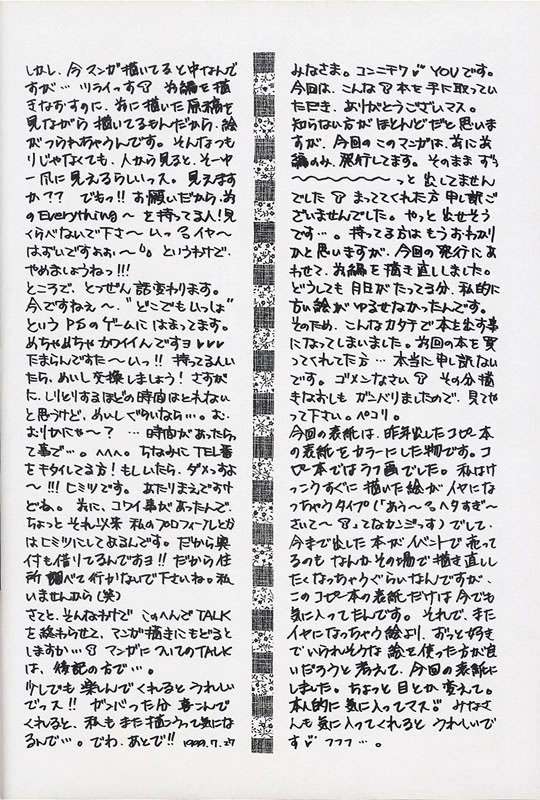 みなさま。コンニチワ♡ YOUです。
今回は、こんな本を手に取っていた
だき、ありがとうございマス。
知らない方がほとんどだと思いま
すが、今回のこのマンガは、前に前
編のみ、発行してます。そのまま ずぅ
〜〜〜〜〜〜〜っと出してません
でした まっててくれた方 申し訳ご
ざいませんでした。やっと出せそう
です…。持ってる方は もうおわかり
かと思いますが、今回の発行にあ
わせて、前編を描き直ししました。
どうしても 月日がたってる分、私的に
古い絵が ゆるせなかったんです。
そのため、こんなカタチで本を出す事
になってしまいました。前回の本を買
ってくれてた方… 本当に申し訳ない
です。ゴメンなさい その分描
きなおしも ガンバりましたので、見てや
って下さい。ペコリ。
今回の表紙は、昨年出したコピー本
の表紙をカラーにした物です。コ
ピー本ではラフ画でした。私はけ
っこうすぐに描いた絵がイヤにな
っちゃうタイプ(「あぅ〜 ヘタすぎ〜
さいて〜」ってなカンジっす)でして、
今まで出した本がイベントで売って
るのも なんかその場で描き直しし
たくなっちゃうぐらいなんですが、
このコピー本の表紙だけは今でも
気に入ってたんです。それで、また
イヤになっちゃう絵より、ずっと好き
でいられそうな 絵を使った方が良
いだろうと考えて、今回の表紙に
しました。ちょっと目とか変えて。
本人的に気に入ってマス♡ みなさ
んも気に入ってくれると うれしいで
す♡ フフフ…。
しかし、今マンガ描いてると中なんで
すが… ツライっす 前編を描
きなおすのに、前に描いた原稿を
見ながら 描いてるもんだから、絵
がつられちゃうんです。そんなつも
りじゃなくても、人から見ると、その中
一爪に見えるらしいっス。見えます
か?? でもっ!! お願いだから、前
のEverything〜 を持ってる人!見
くらべないで下さ〜いっ イヤ〜
はずいですよぉぉ〜 というわけで、
やめましょうねっ!!!
ところで、とつぜん話変わります。
今ですねぇ〜、"どこでもいっしょ"
という PSのゲームに はまってます。
めちゃめちゃカワイイんですヨ♡♡♡
たまらんですた〜いっ!! 持ってる人い
たら、めいし交換しましょう! さすが
に、しりとりするほどの時間はとれない
と思うけど、めいしぐらいなら…。む、
むりかにゃ〜? …時間があったらっ
て事で…。へへへ。ちなみに TEL番
をキタイしてる方! もしいたら、ダメっすよ
〜!!! ヒミツです。あたりまえですけ
どね。前に、コワイ事があったんで、
ちょっと それ以来 私のプロフィールとか
はヒミツにしてあるんです。だから奥
付も借りてるんですヨ!! だから住
所 調べて行かないで下さいねっ 私
いませんから(笑)
さてと、そんなわけで このへんでTALK
を終わらせて、マンガ描きにもどると
しますか… マンガについてのTALK
は、後記の方で…。
少しでも 楽しんでくれると うれしい
でっス!! ガンバった分 喜こんで
くれると、私もまた描こうって気にな
るんで…。でわ、あとで!! 1999.7.27